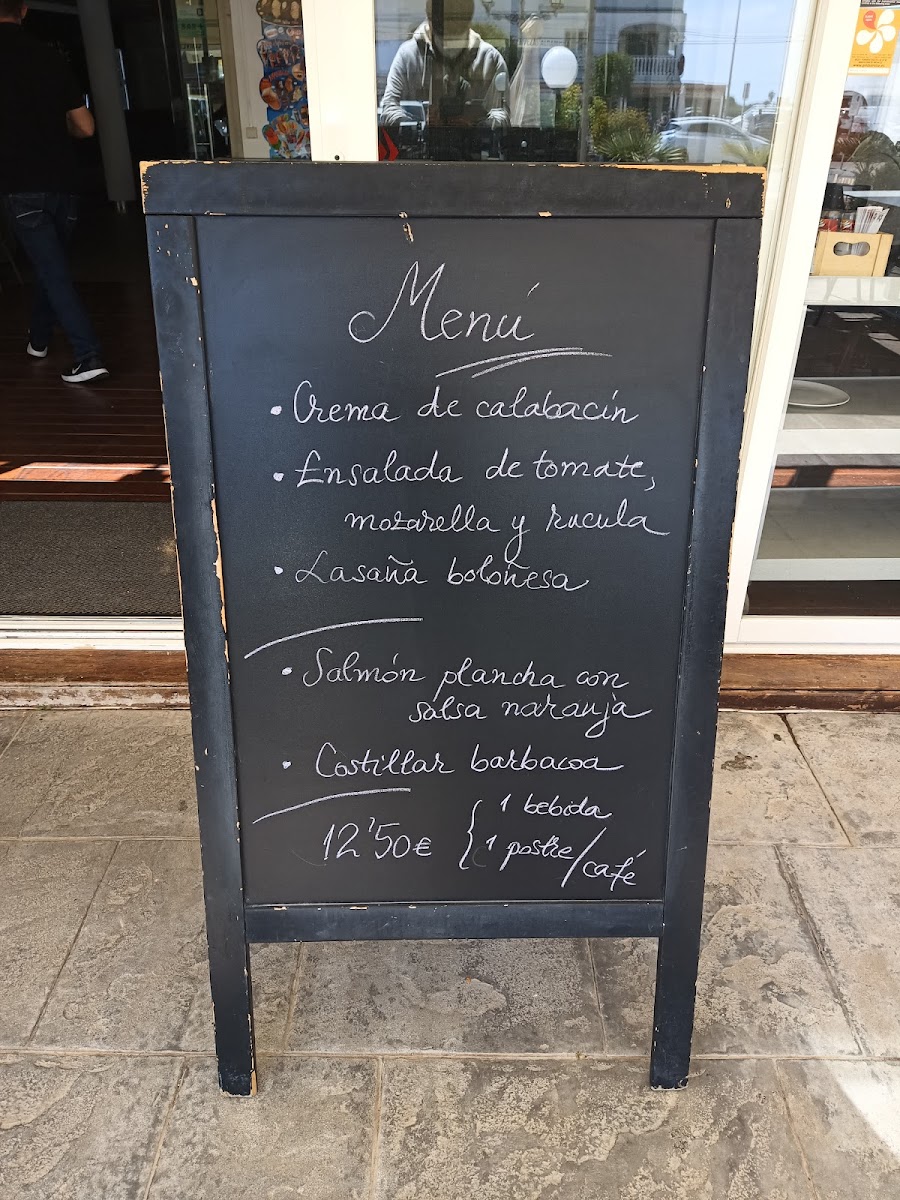 Menú
• Crema de calabacín
• Ensalada de tomate,
mozarella y rucula
• Lasaña boloñesa
• Salmón plancha con
salsa naranja
• Costillar barbacoa
12'50€ { 1 bebida
1 postre/café